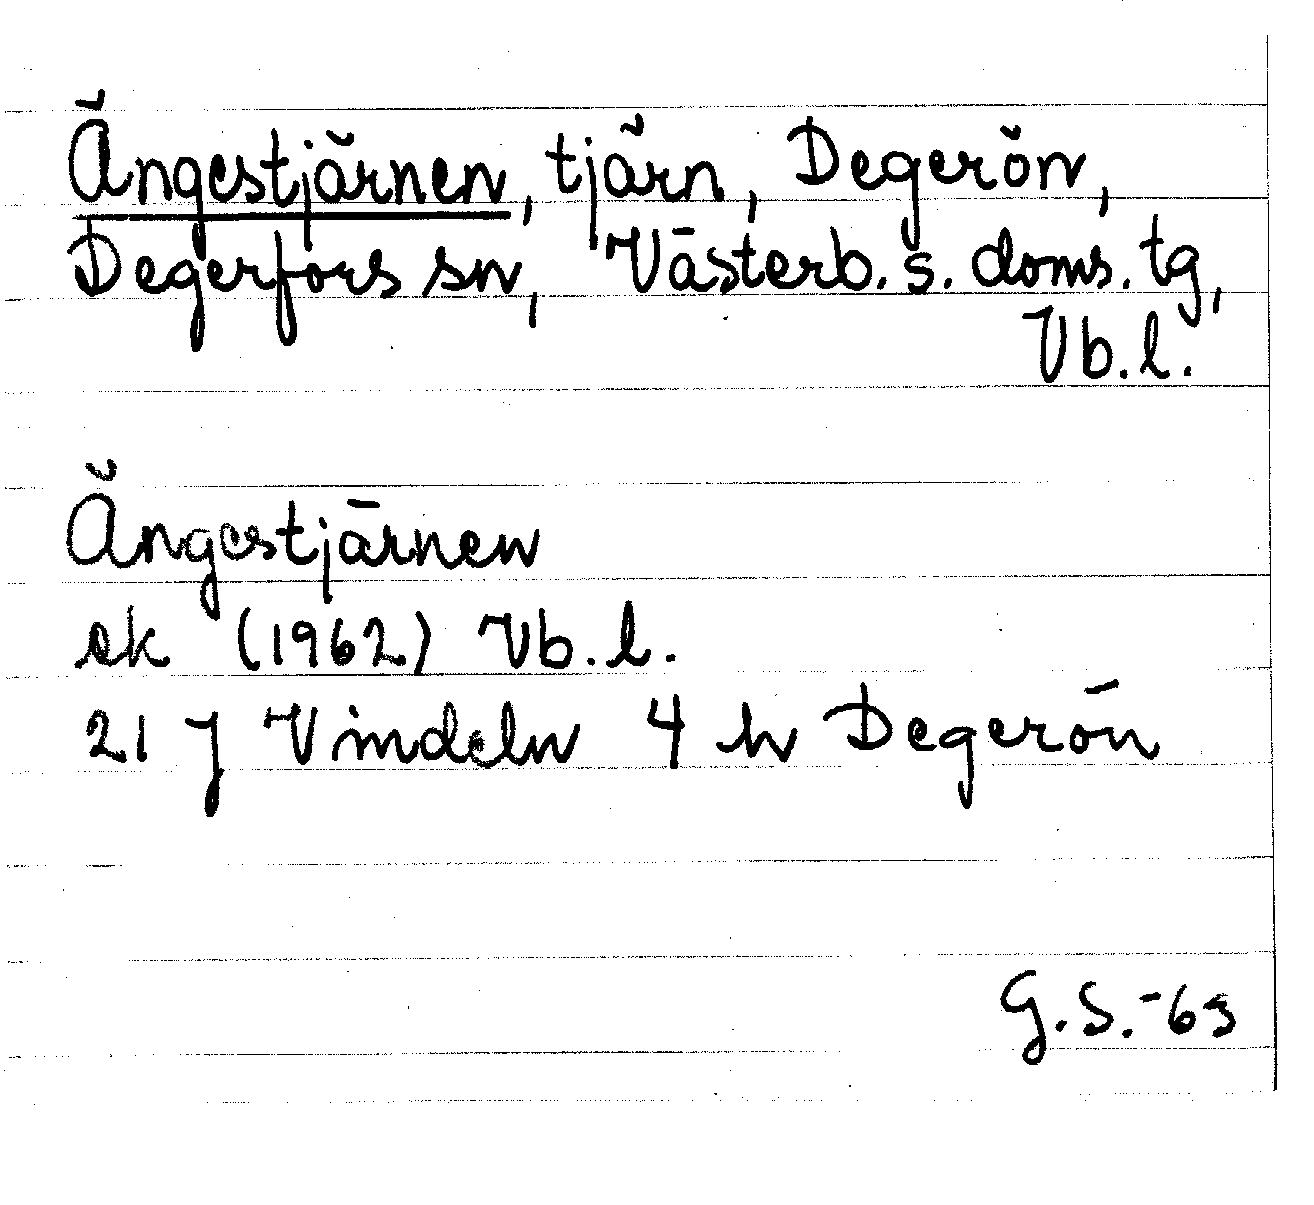 Ängestjärnen, tjärn, Degerön,
Degerfors sn, Västerb. s. doms. tg,
Vb. l.
Ängestjärnen
ek (1962) Vb. l.
21 J Vindeln 4 h Degerön
G.S.-65